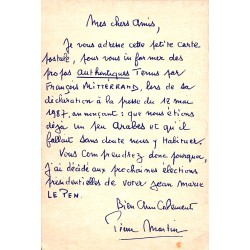 Mes chers Amis,
Je vous adresse cette petite carte
postale, pour vous informer des
propos authentiques Tenus par
FRANÇOIS MITTERRAND, lors de sa
déclaration à la presse du 12 mai
1987, annonçant : que nous étions
déjà un peu Arabes et qu'il
fallait sans doute nous y Habituer.
Vous Comprendrez donc pourquoi,
j'ai décidé aux prochaines élections
présidentielles de voter jean marie
LE PEN.
Bien Amicalement
Pierre Martin